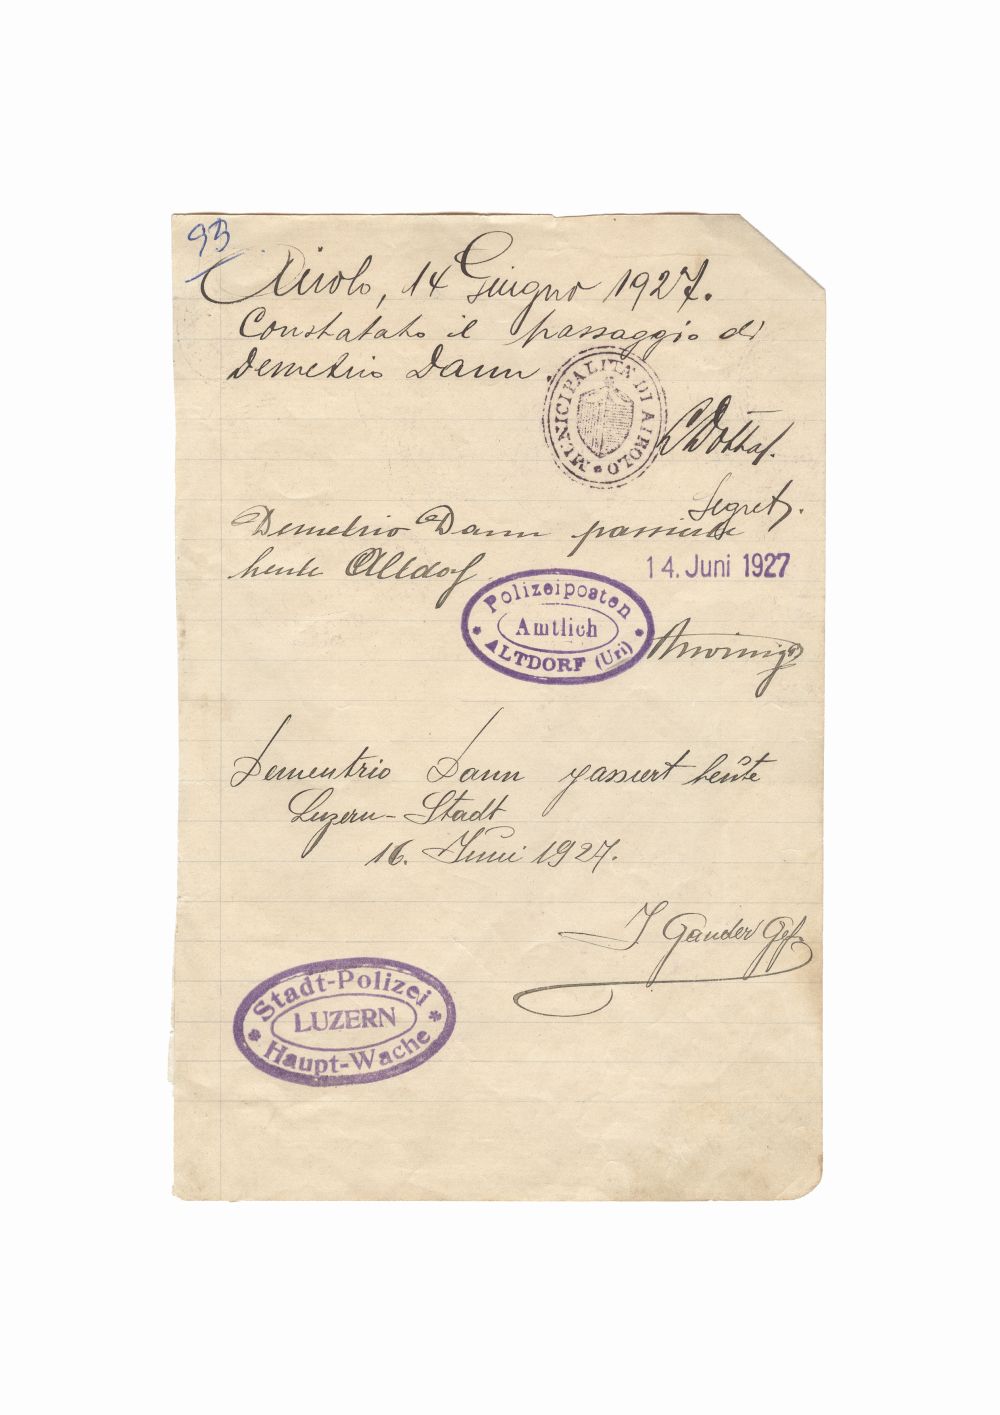 93
Airolo, 14 Giugno 1927.
Constatato il passaggio di
Demetrio Dann
MUNICIPALITÀ DI AIROLO
Segret.
Demetrio Dann passierte
heute Altdorf
14. Juni 1927
Polizeiposten
Amtlich
ALTDORF (Uri)
Dementrio Dann passiert heute
Luzern-Stadt
16. Juni 1927.
J Gander Gef.
Stadt-Polizei
LUZERN
Haupt-Wache